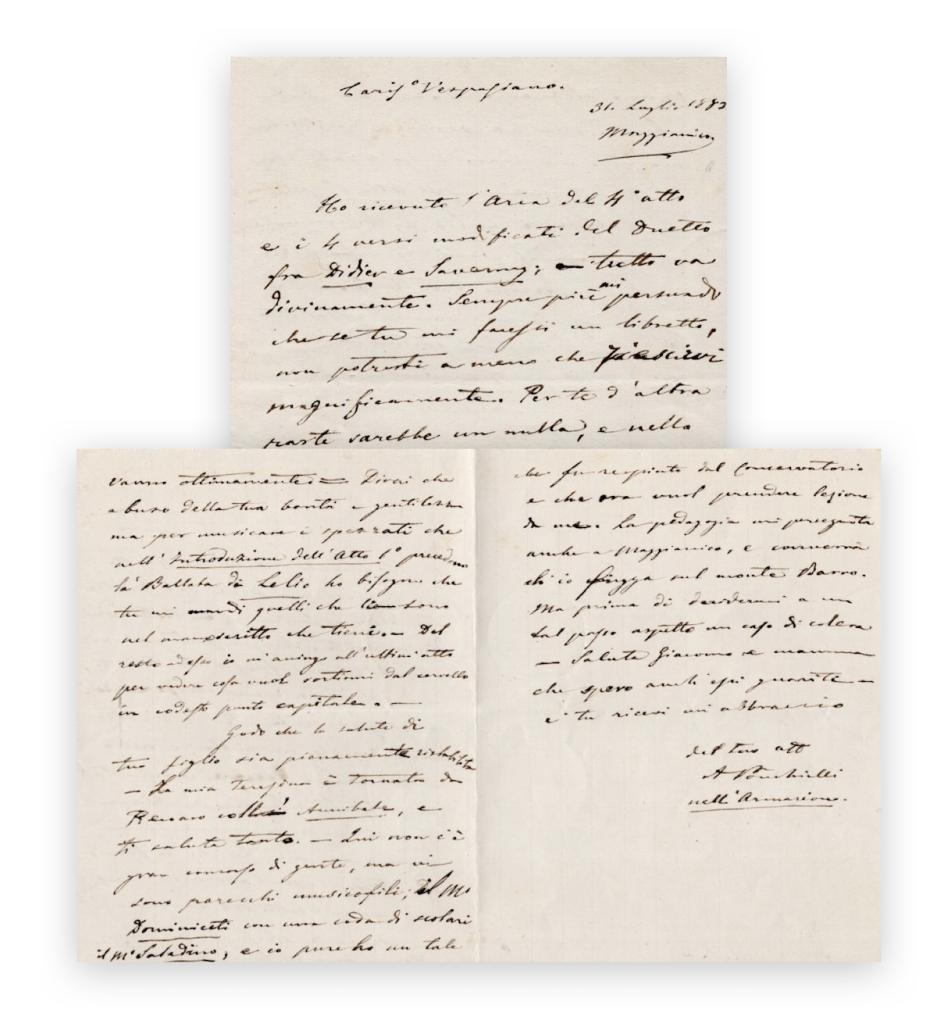 Cariſ.º Vespasiano.
31. Luglio 188
Maggianico
Ho ricevuto l'Aria del 4º atto
e i 4 versi modificati del Duetto
fra Didier e Saverny; — tutto va
divinamente. Sempre più mi persuado
che se tu mi facessi un libretto,
non potresti a meno che riescirvi
magnificamente. Per te d'altra
parte sarebbe un nulla, e nello
vanno ottimamente. = Dirai che
abuso della tua bontà e gentilezza
ma per musicare i spezzati che
nell'Introduzione dell'Atto 1º precedono
la Ballata di Lelio ho bisogno che
tu mi mandi quelli che sono
nel manoscritto che tieni. — Del
resto adesso io m'accingo all'ultimo atto
per vedere cosa vuol sortirmi dal cervello
in codesto punto capitale. —
Godo che la salute di
tuo figlio sia pienamente ristabilita
— La mia Teresina è tornata da
Annibale, e
ti saluta tanto. — Qui non c'è
gran concorso di gente, ma vi
sono parecchi musicofili; il Mº
Dominiceti con una coda di scolari
il Mº Saladino, e io pure ho un tale
che fu respinto dal Conservatorio
e che ora vuol prendere lezione
da me. La pedagogia mi perseguita
anche a Maggianico, e converrà
ch'io fugga sul monte Barro.
Ma prima di decidermi a un
tal passo aspetto un caso di colera
— Saluta Giacomo e mamma
che spero ambi
e tu ricevi un abbraccio
del tuo aff
A Ponchielli
nell'Armazione.